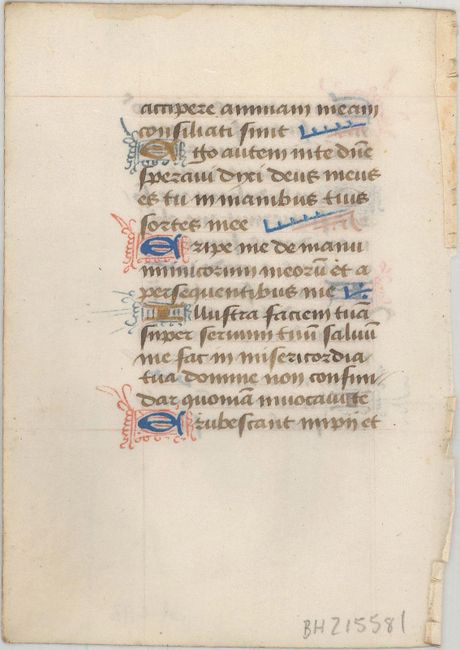 accipere animam meam
consiliati sunt
Ego autem in te dne
speravi dixi deus meus
es tu in manibus tuis
sortes mee
Eripe me de manu
inimicorum meorū et a
persequentibus me
Illustra faciem tuā
super servum tuū salvū
me fac in misericordia
tua domine non confun
dar quoniam invocavi te
Erubescant impii et
BH215581